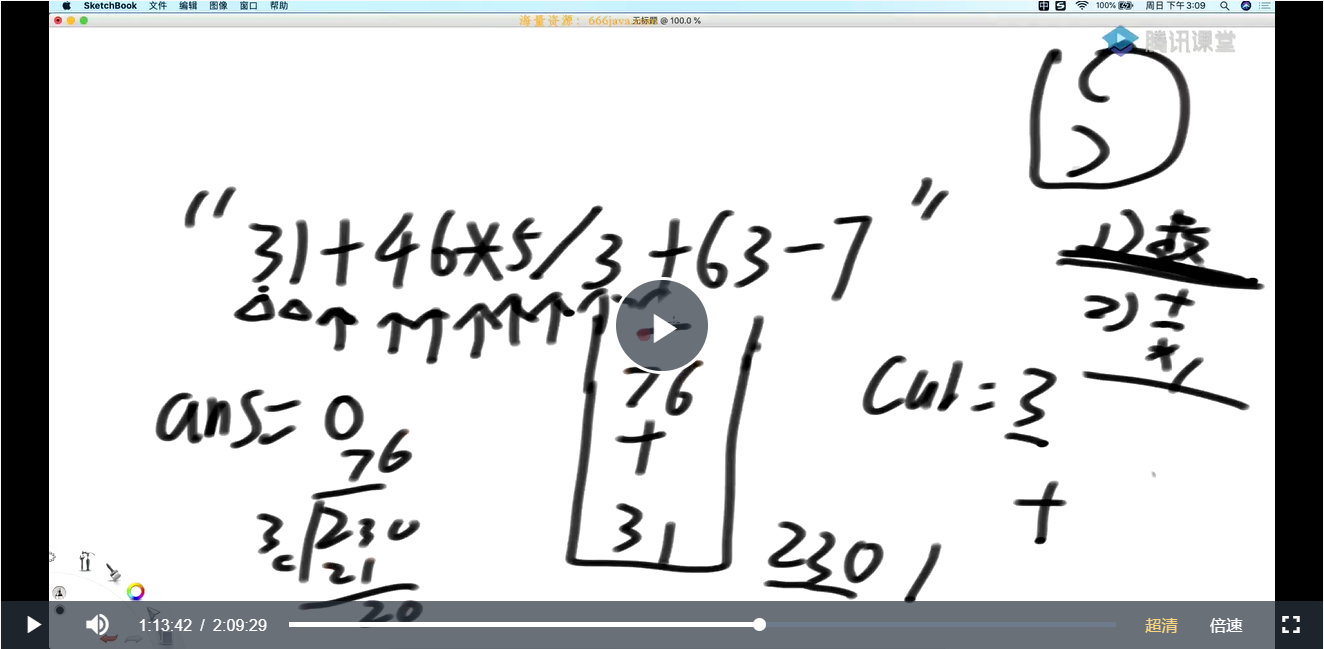 SketchBook 文件 编辑 图像 窗口 帮助 100% 周日 下午3:09
海量资源：666java 无标题 @ 100.0 %
腾讯课堂
"31+46*5/3+63-7"
1)
2) + - * /
76
+
31
ans=0
cur=3
+
76
3 230
21
20
230 /
1:13:42 / 2:09:29 超清 倍速